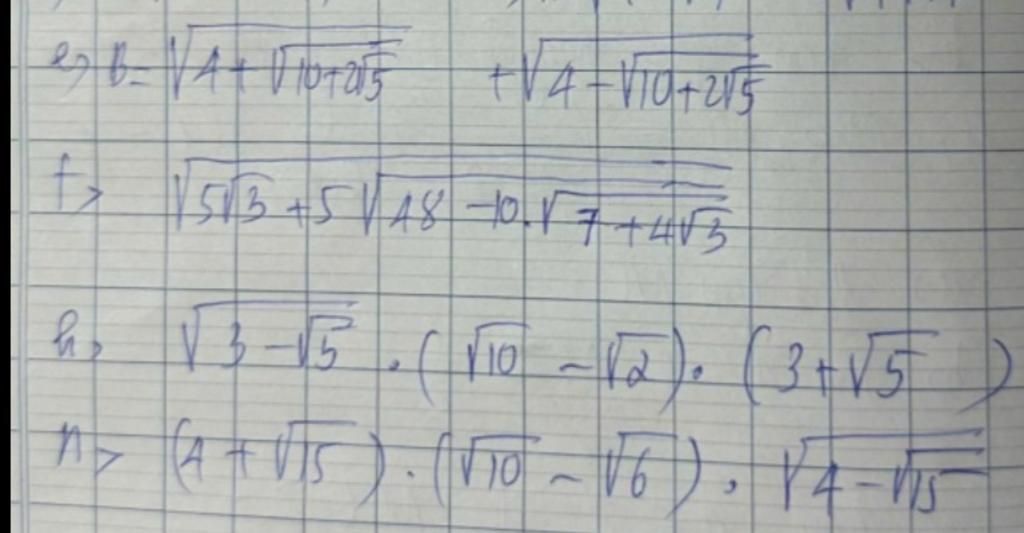 e, B = √(4 + √(10+2√5)) + √(4 - √(10+2√5))
f, √(5√3 + 5√(48 - 10.√(7 + 4√3)))
h, √(3 - √5) . (√10 - √2) . (3 + √5)
n, (4 + √15) . (√10 - √6) . √(4 - √15)